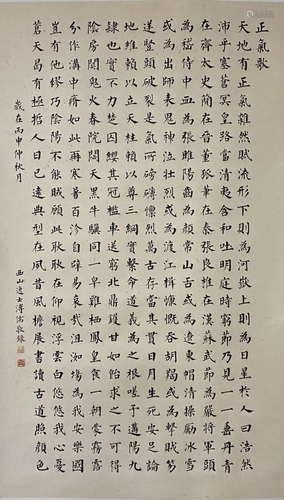 正氣歌
天地有正氣雜然賦流形下則為河嶽上則為日星於人曰浩然
沛乎塞蒼冥皇路當清夷含和吐明庭時窮節乃見一一垂丹青
在齊太史簡在晉董狐筆在秦張良椎在漢蘇武節為嚴將軍頭
為嵇侍中血為張睢陽齒為顏常山舌或為遼東帽清操勵冰雪
或為出師表鬼神泣壯烈或為渡江楫慷慨吞胡羯或為擊賊笏
逆豎頭破裂是氣所磅礴凜烈萬古存當其貫日月生死安足論
地維賴以立天柱賴以尊三綱實繫命道義為之根嗟予遘陽九
隸也實不力楚囚纓其冠檻車送窮北鼎鑊甘如飴求之不可得
陰房闃鬼火春院閟天黑牛驥同一皁雞棲鳳皇食一朝蒙霧露
分作溝中瘠如此再寒暑百沴自辟易哀哉沮洳場為我安樂國
豈有他繆巧陰陽不能賊顧此耿耿在仰視浮雲白悠悠我心憂
蒼天曷有極哲人日已遠典型在夙昔風檐展書讀古道照顏色
歲在丙申仲秋月
西山逸士溥儒敬錄